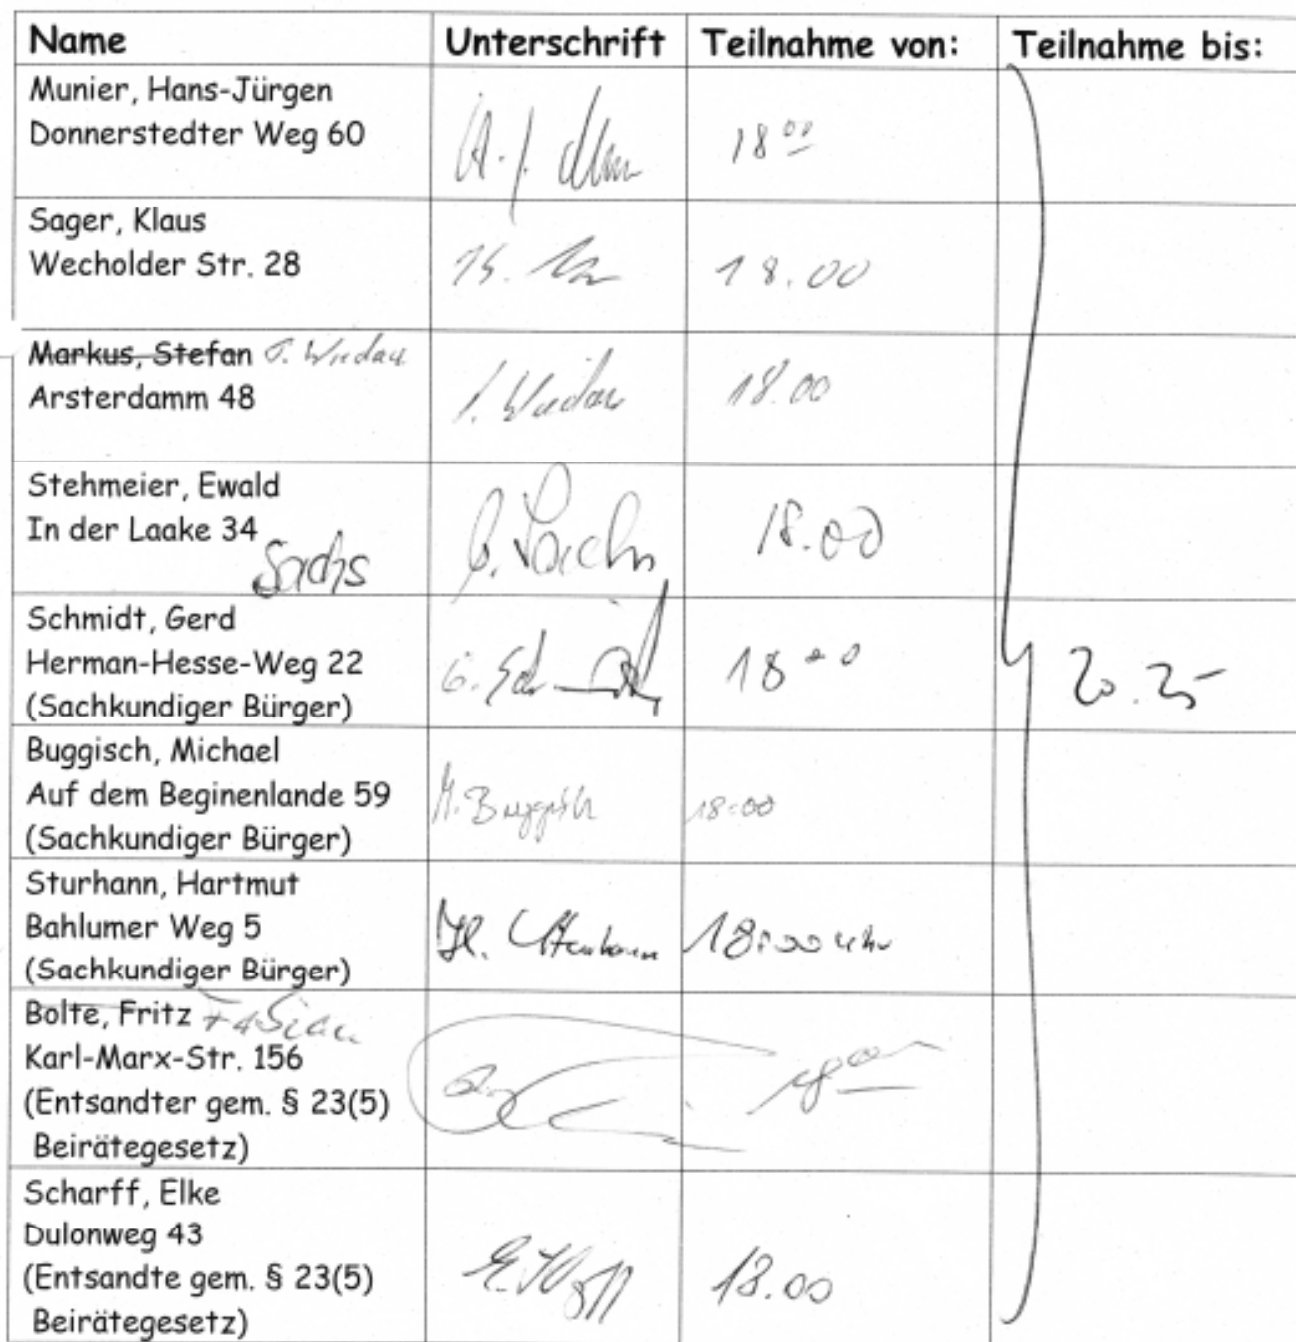 Name Unterschrift Teilnahme von: Teilnahme bis:
Munier, Hans-Jürgen
Donnerstedter Weg 60
H.-J. 18 00
Sager, Klaus
Wecholder Str. 28
K. 18.00
Markus, Stefan J. Wiedau
Arsterdamm 48
J. Wiedau 18.00
Stehmeier, Ewald
In der Laake 34
Sachs
Sachs 18.00
Schmidt, Gerd
Herman-Hesse-Weg 22
(Sachkundiger Bürger)
G. Schmidt 18 00 20.25
Buggisch, Michael
Auf dem Beginenlande 59
(Sachkundiger Bürger)
M. Buggisch 18:00
Sturhann, Hartmut
Bahlumer Weg 5
(Sachkundiger Bürger)
18:00 Uhr
Bolte, Fritz
Karl-Marx-Str. 156
(Entsandter gem. § 23(5)
Beirätegesetz)
18 00
Scharff, Elke
Dulonweg 43
(Entsandte gem. § 23(5)
Beirätegesetz)
E. Scharff 18.00